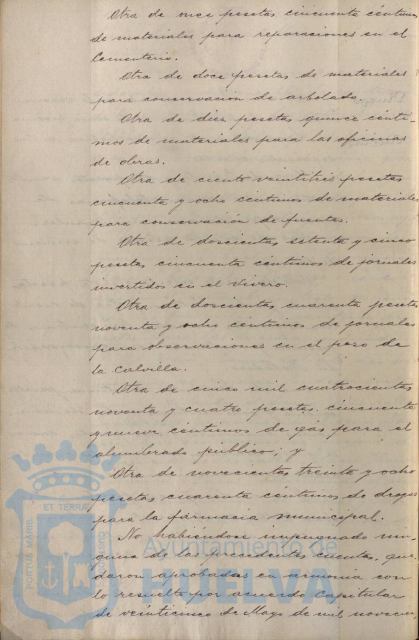 Otra de once pesetas cincuenta céntimos
de materiales para reparaciones en el
Cementerio.
Otra de doce pesetas de materiales
para conservación de arbolado.
Otra de diez pesetas quince cénti-
mos de materiales para las oficinas
de obras.
Otra de ciento veintitrés pesetas
cincuenta y ocho céntimos de materiales
para conservación de fuentes.
Otra de doscientas setenta y cinco
pesetas cincuenta céntimos de jornales
invertidos en el Vivero.
Otra de doscientas cuarenta pesetas
noventa y ocho céntimos de jornales
para observaciones en el pozo de
la Calvilla.
Otra de cinco mil cuatrocientas
noventa y cuatro pesetas cincuenta
y nueve céntimos de gas para el
alumbrado público; y
Otra de novecientas treinta y ocho
pesetas cuarenta céntimos de drogas
para la farmacia municipal.
No habiéndose impugnado nin-
guna de las precedentes cuentas, que-
daron aprobadas en armonía con
lo resuelto por acuerdo capitular
de veinticinco de Mayo de mil novecien
PORTUS MARIS ET TERRAE CUSTODIA
Ayuntamiento de
HUELVA